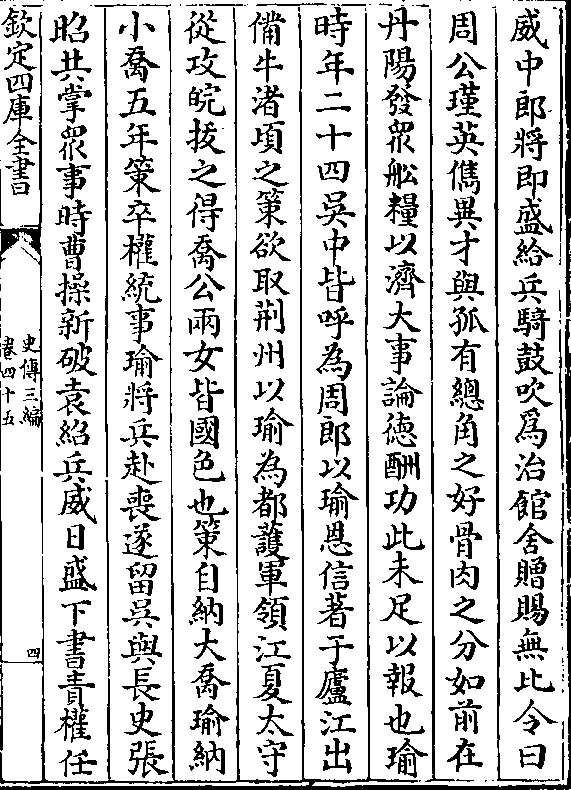 威中郎將即盛給兵騎鼓吹爲治館舍贈賜無比令曰
周公瑾英儁異才與孤有總角之好骨肉之分如前在
丹陽發眾船糧以濟大事論德酬功此未足以報也瑜
時年二十四吳中皆呼為周郎以瑜恩信著于廬江出
備牛渚頃之策欲取荆州以瑜為都護軍領江夏太守
從攻皖拔之得喬公兩女皆國色也策自納大喬瑜納
小喬五年策卒權統事瑜將兵赴喪遂留吳與長史張
昭共掌眾事時曹操新破袁紹兵威日盛下書責權任
欽定四庫全書
史傳三編
卷四十五
四